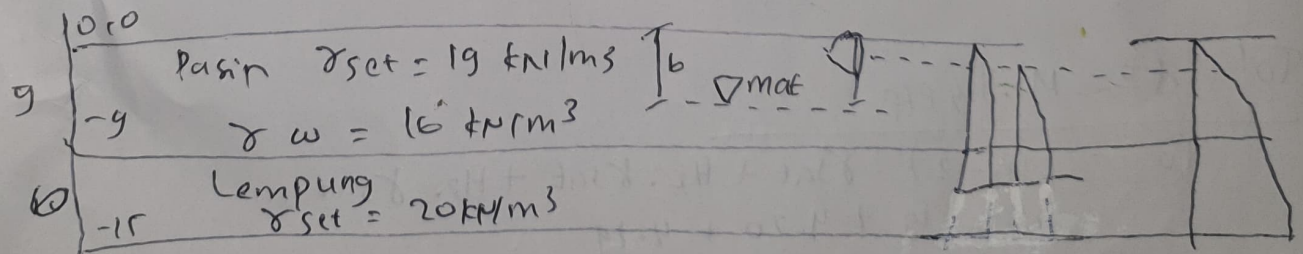 0,0
Pasir γset = 19 kN/m3
6
9
▽mat
-9
γ w = 16 kN/m3
Lempung
γset = 20 kN/m3
-15